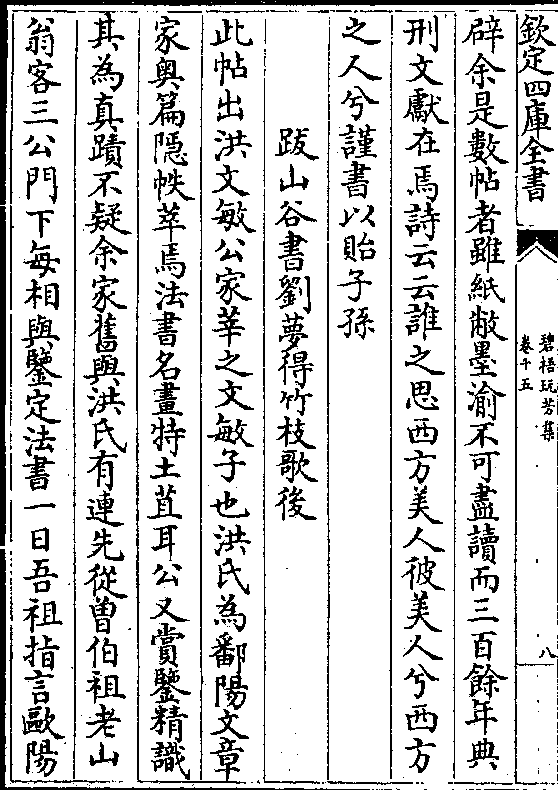 欽定四庫全書
碧梧玩芳集
卷十五
八
辟余是數帖者雖紙敝墨渝不可盡讀而三百餘年典
刑文獻在焉詩云云誰之思西方美人彼美人兮西方
之人兮謹書以貽子孫
跋山谷書劉夢得竹枝歌後
此帖出洪文敏公家莘之文敏子也洪氏為鄱陽文章
家奥篇隠帙萃焉法書名畫特土苴耳公又賞鑒精識
其為真蹟不疑余家舊與洪氏有連先從曽伯祖老山
翁客三公門下每相與鑒定法書一日吾祖指言歐陽